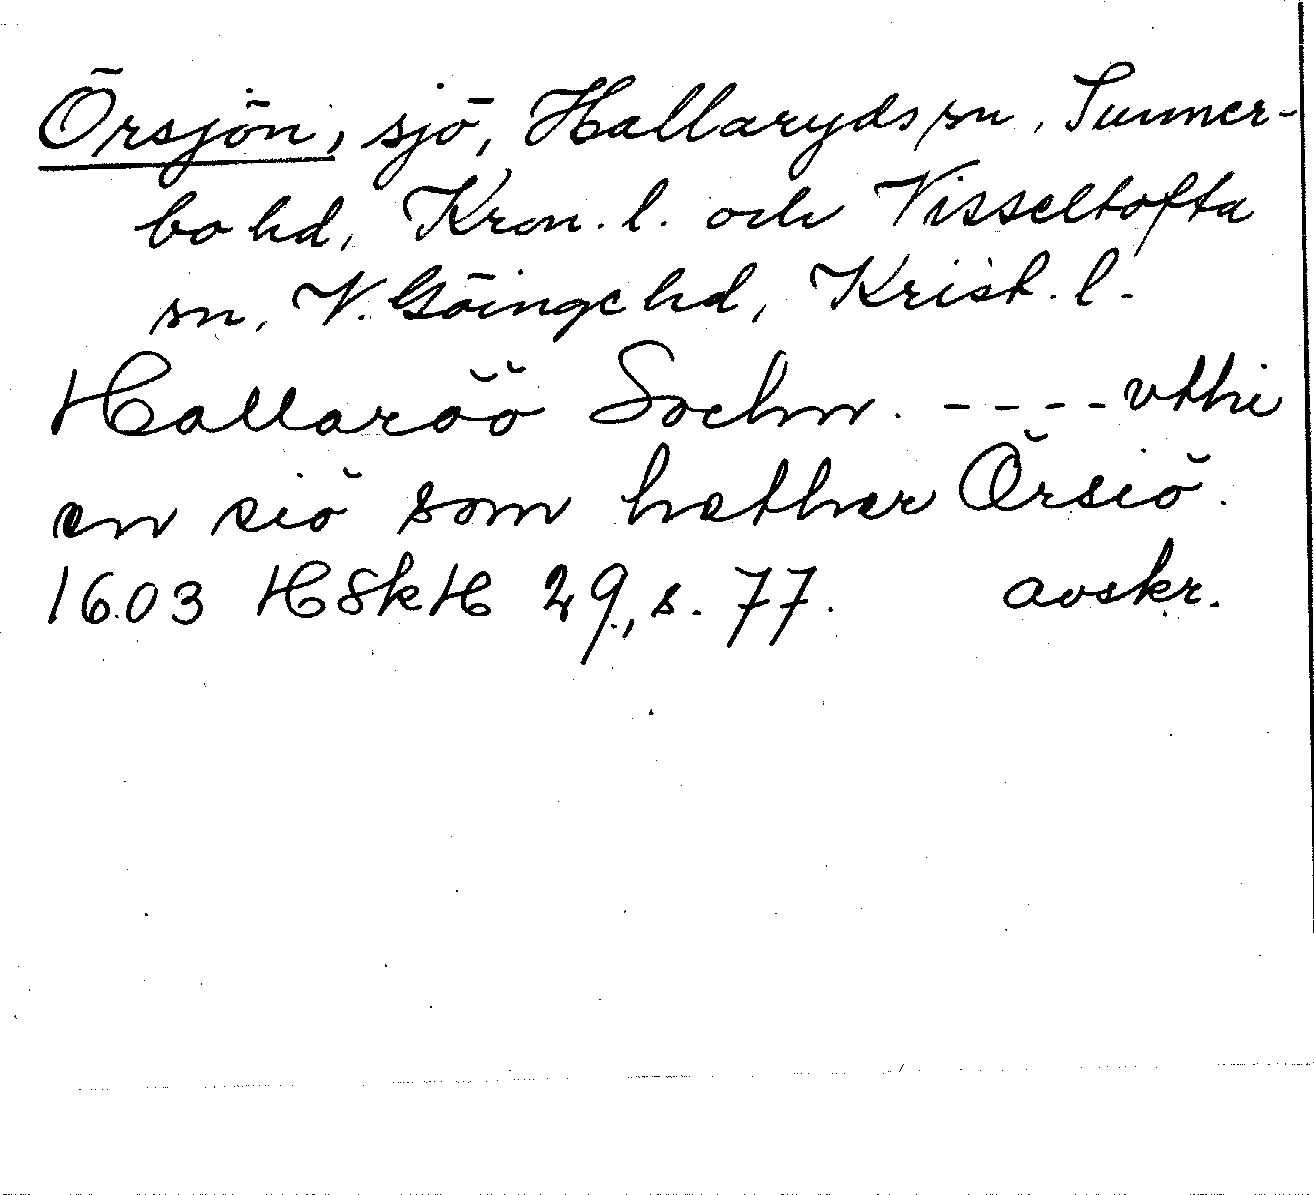 Örsjön, sjö, Hallaryds sn, Sunner-
bo hd, Kron. l. och Visseltofta
sn, V. Göinge hd, Krist. l.
Hallaröö Sochn. ---- vthi
en siö som hether Örsiö.
1603 HSkH 29, s. 77. avskr.